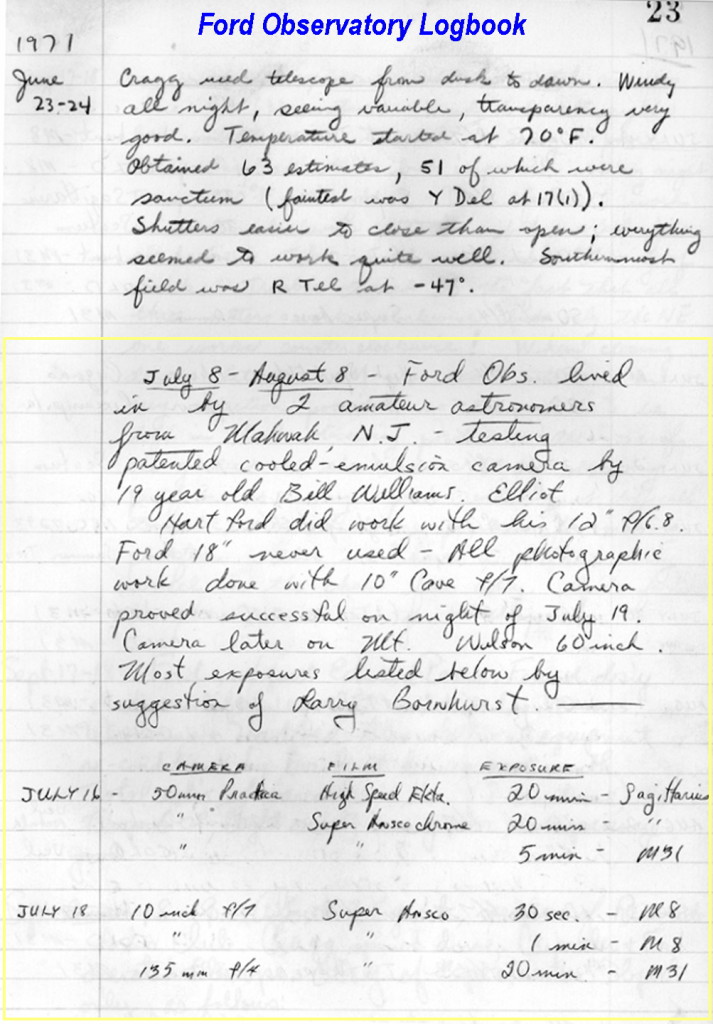 23
Ford Observatory Logbook
1971
June 23-24 Cragg used telescope from dusk to dawn. Windy
all night, seeing variable, transparency very
good. Temperature started at 70°F.
Obtained 63 estimates, 51 of which were
sanctum (faintest was Y Del at 17(1)).
Shutters easier to close than open; everything
seemed to work quite well. Southernmost
field was R Tel at -47°.
July 8 - August 8 - Ford Obs. lived
in by 2 amateur astronomers
from Mahwah, N.J. - testing
patented cooled-emulsion camera by
19 year old Bill Williams. Elliot
Hartford did work with his 12" f/6.8.
Ford 18" never used - All photographic
work done with 10" Cave f/7. Camera
proved successful on night of July 19.
Camera later on Mt. Wilson 60 inch.
Most exposures listed below by
suggestion of Larry Bornhurst.
CAMERA FILM EXPOSURE
JULY 16 - 50mm Practica High Speed Ekta. 20 min - Sagittarius
" Super Anscochrome 20 min - "
" 5 min - M31
JULY 18 10 inch f/7 Super Ansco 30 sec. - M8
" " 1 min - M8
135 mm f/4 " 20 min - M31